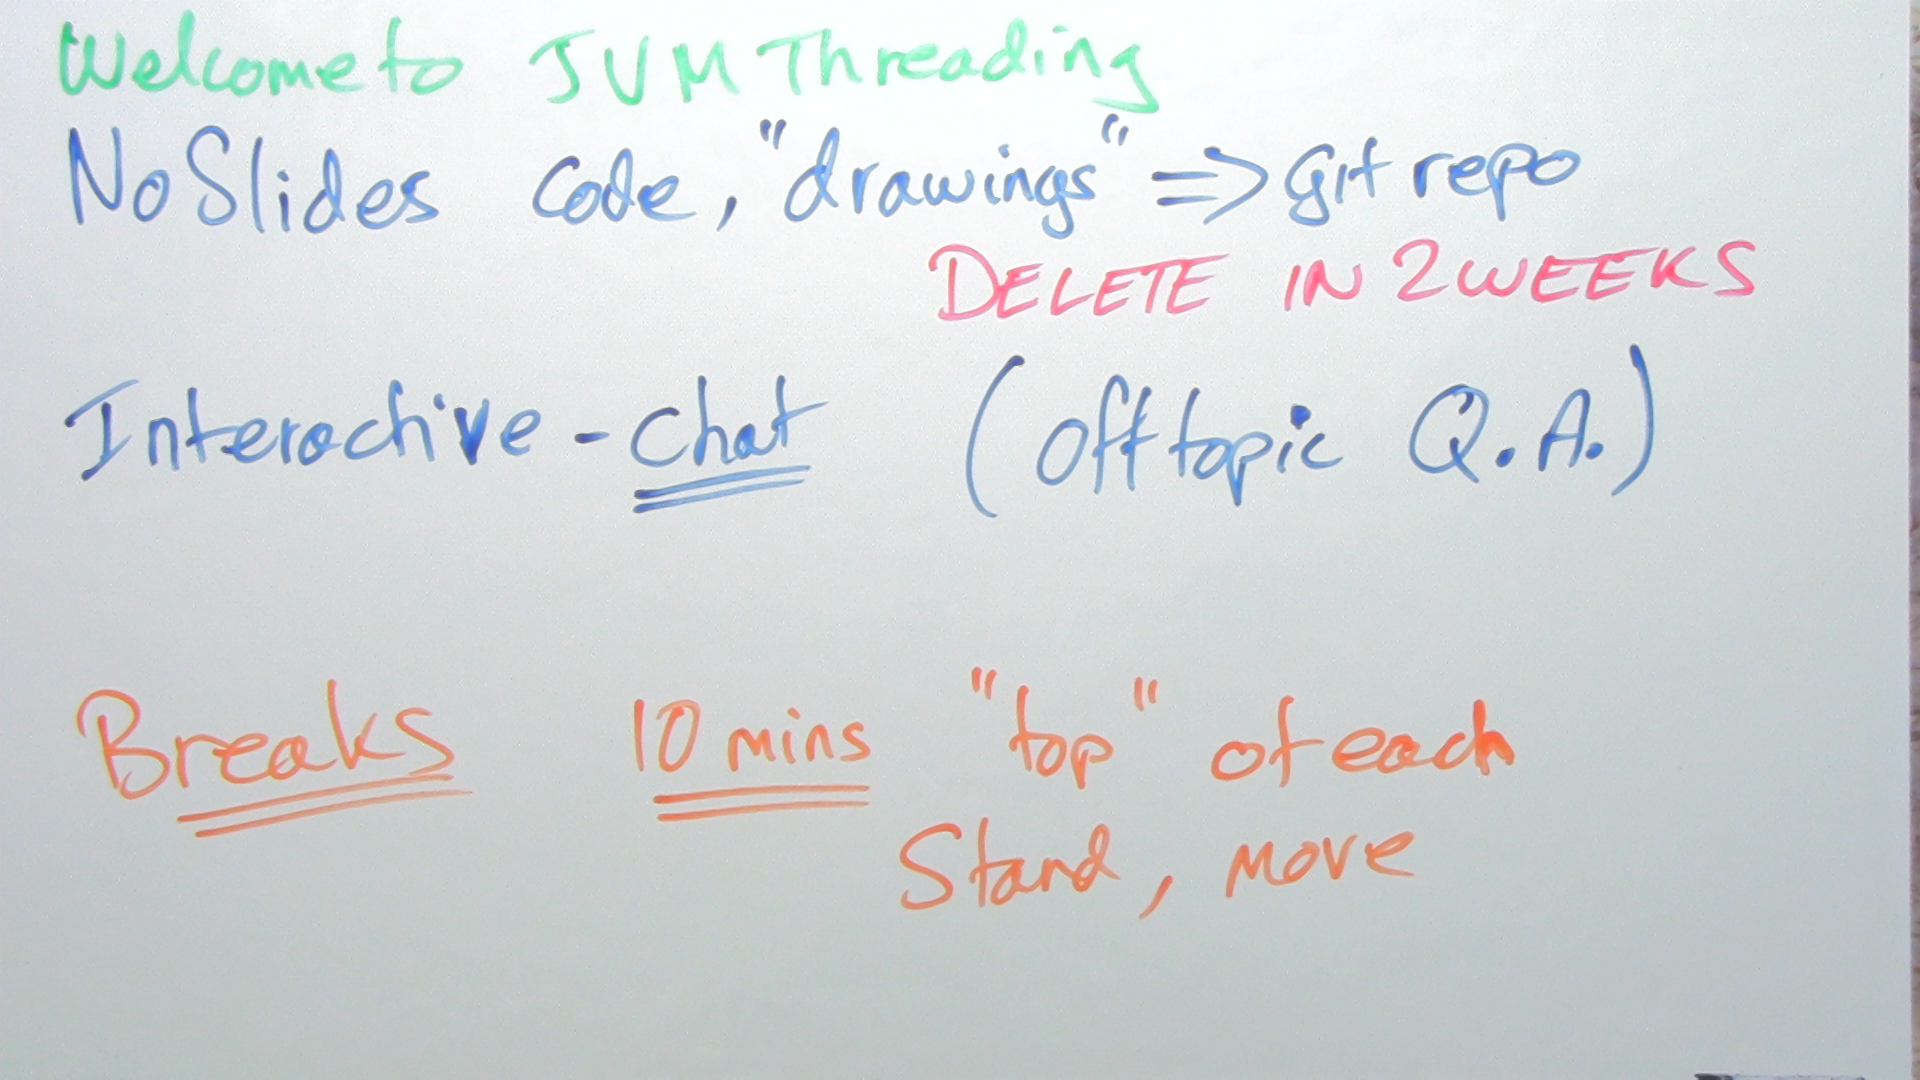 Welcome to JVM Threading
No Slides code, "drawings" => git repo
DELETE IN 2 WEEKS
Interactive - chat (off topic Q.A.)
Breaks 10 mins "top" of each
Stand, move